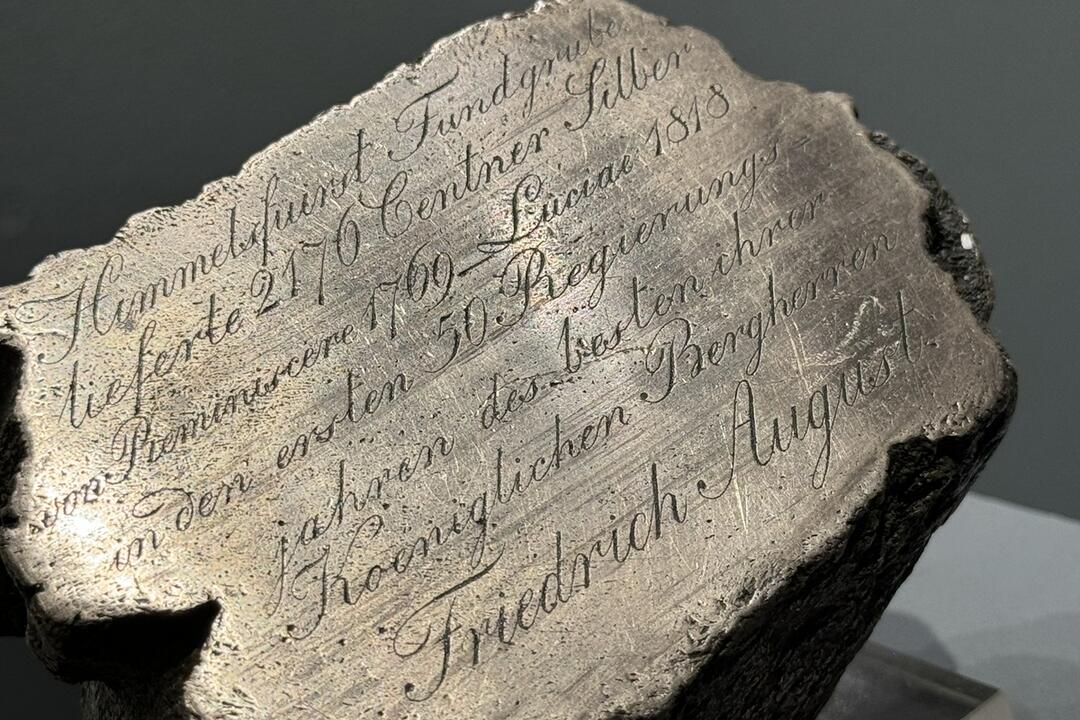 Himmelsfürst Fundgrube
lieferte 2176 Centner Silber
von Reminiscere 1769 – Luciae 1818
in den ersten 50 Regierungs-
jahren des besten ihrer
Koeniglichen Bergherren
Friedrich August.